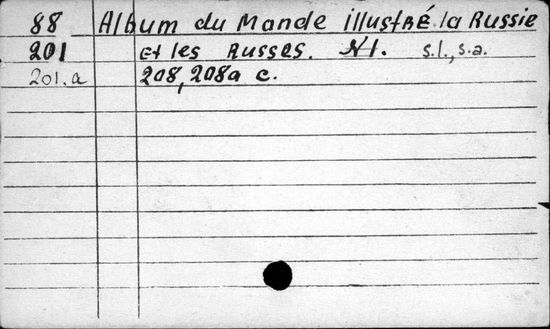 88 Album du Mande illustré la Russie
201 et les Russes. N1. s.l., s.a.
201.a 208, 208a c.